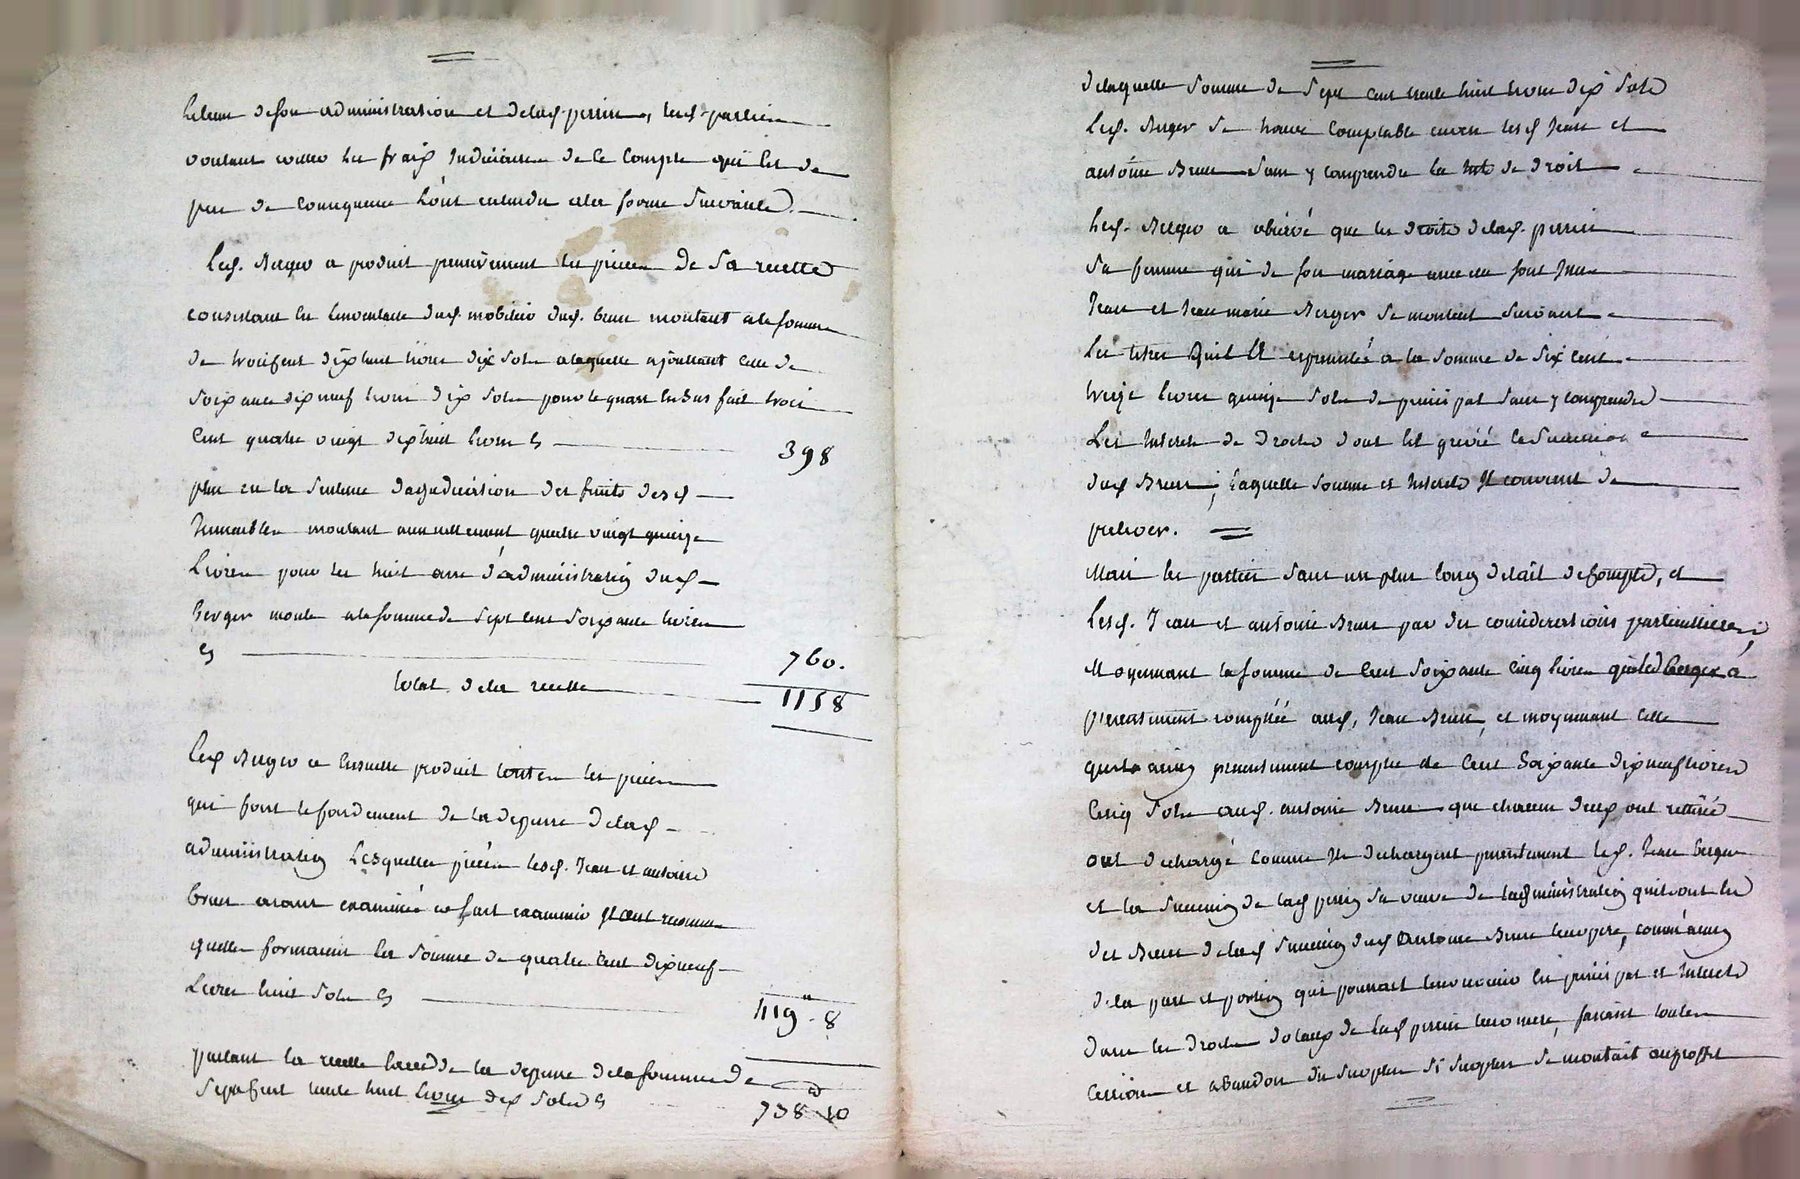 de son administration et de lad. perrin, lesd. parties
voulant eviter les frais Judiciaires de ce Compte qui est de
peu de Consequence l'ont entendu a la forme Suivante.
Led. Berger a produit premierement les pieces de Sa recette
consistant en l'inventaire dud. mobilier dud. brun montant a la somme
de troiscent dixhuit livres dix Sols a laquelle ajoutant celle de
Soixante dix neuf livres dix Sols pour le quart en Sus fait trois
Cent quatre vingt dixhuit livres Cy
398
plus en la Sentence d'adjudication des fruits desd
Immeubles montant annuellement quatre vingt quinze
Livres pour les huit ans d'administration dud
Berger monte a la somme de Sept Cent Soixante livres
Cy
760.
total de la recette
1158
Led Berger a Ensuitte produit toutes les pieces
qui font le fondement de la depense de lad
administration Lesquelles pieces lesd. Jean et antoine
brun ayant examinées et fait examiner Ils ont reconnu
quelles formaient la Somme de quatre Cent dixneuf
Livres huit Sols Cy
419 . 8
partant la recette la depense de la somme de
Sept Cent trente huit livres dix Sols Cy
738 10
de laquelle Somme de Sept Cent trente huit livres dix Sols
Led. Berger Se trouve Comptable envers lesd Jean et
antoine Brun Sans y comprendre la de droit
Led. Berger a observé que les droits de lad. perrin
Sa femme qui de son mariage avec eu font
Jean et Jean marie Berger Se montent Suivant
Les titres quil a a la Somme de Six Cent
treize livres quinze Sols de principal Sans y comprendre
Les Interets de droits dont est grevée la Succession
dud Brun, laquelle Somme et Interets Il convient de
prelever.
Mais les parties Sans un plus long detail de Compte, et
Lesd. Jean et antoine Brun par des considerations particullieres,
Moyennant la somme de Cent Soixante Cinq livres que led Berger a
presentement comptée aud, Jean Brun, et moyennant celle
quil a aussy presentement comptée de Cent Soixante dixneuf livres
Cinq Sols aud. antoine Brun que chacun deux ont retirée
ont dechargé comme Ils dechargent presentement led. Jean Berger
et la Succession de lad perrin Sa veuve de ladministration quils ont eu
des Biens de lad Succession dud Antoine Brun leur pere, comme aussy
de la part et portion qui pourrait leur revenir en principal et Interets
dans les droits dotaux de lad perrin leur mere, faisant toutes
Cessions et abandon du Surplus Si Surplus Se montait au proffit